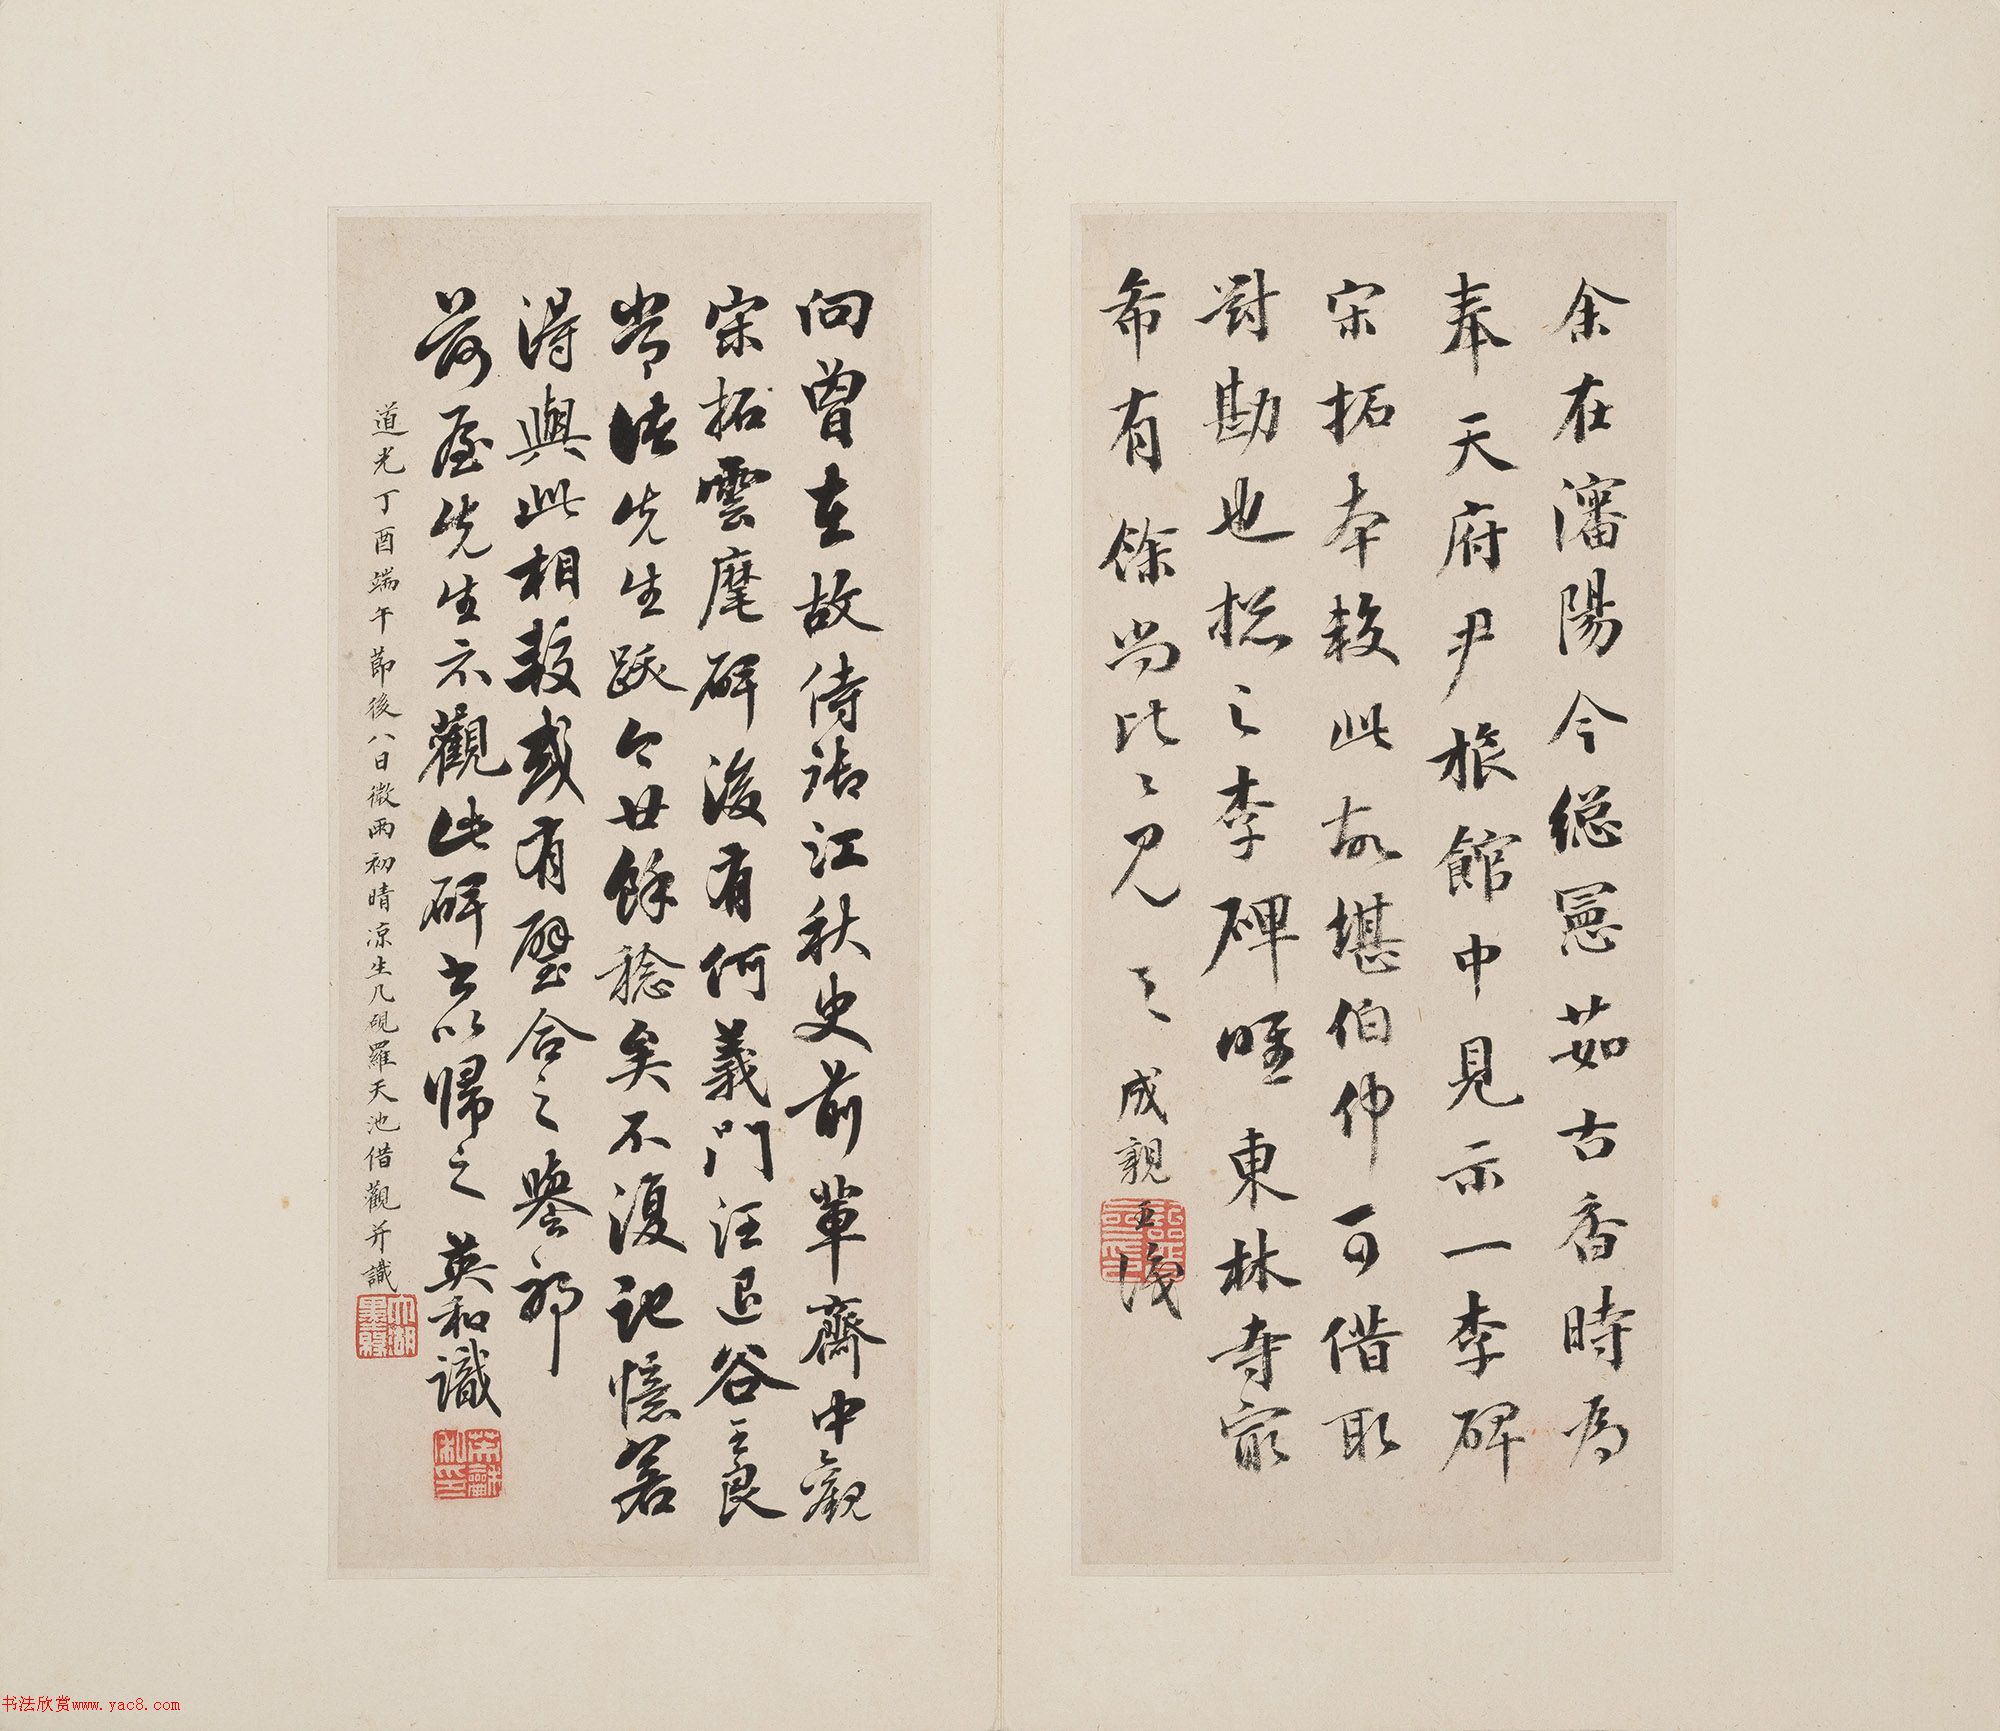 余在瀋陽今総憲茹古香時為
奉天府尹旅館中見示一李碑
宋拓本較此故堪伯仲可借取
對勘也揔之李碑唯東林寺寂
希有餘尚比〻見之 成親王識
向曾在故侍御江秋史前輩齋中觀
宋拓雲麾碑後有何義門汪退谷王良
常諸先生跋今廿餘稔矣不復記憶若
得與此相較或有璧合之譽邪
荷屋先生示觀此碑書以歸之 英和識
道光丁酉端午節後八日微雨初晴凉生几硯羅天池借觀并識
书法欣赏www.yac8.com